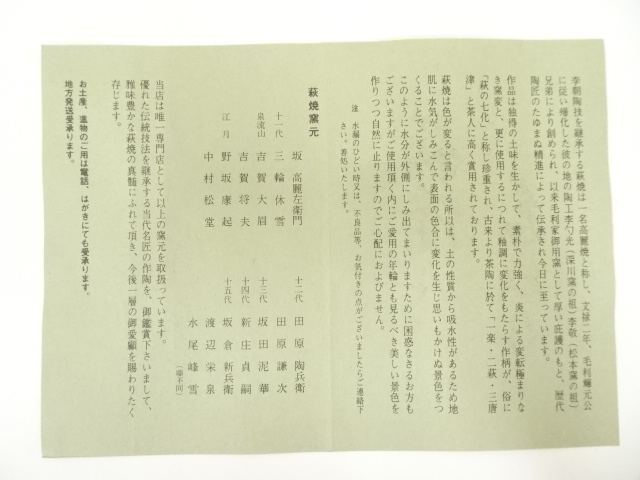 李朝陶技を継承する萩焼は一名高麗焼と称し、文禄二年、毛利輝元公
に従い帰化した彼の地の陶工李勺光(深川窯の祖)李敬(松本窯の祖)
兄弟により創められ、以来毛利家御用窯として厚い庇護のもと、歴代
陶匠のたゆまぬ精進によって伝承され今日に至っています。
作品は独得の土味を生かして、素朴で力強く、炎による変転極まりな
き窯変と、更に使用するにつれて釉調に変化をもたらす作柄が、俗に
「萩の七化」と称し珍重され、古来より茶陶に於て「一楽・二萩・三唐
津」と茶人に高く賞用されております。
萩焼は色が変ると言われる所以は、土の性質から吸水性があるため地
肌に水気がしみこんで表面の色合に変化を生じ思いもかけぬ景色をつ
くることでございます。
このように水分が外側にしみ出てまいりますために困惑なさるお方も
ございますがご使用頂く内にご愛用の年輪とも見るべき美しい景色を
作りつつ自然に止りますのでご心配におよびません。
注 水漏のひどい時又は、不良品等、お気付きの点がございましたらご連絡下
さい。善処いたします。
萩焼窯元
坂高麗左衛門
十一代 三輪休雪
泉流山 吉賀大眉
吉賀将夫
江月 野坂康起
中村松堂
十二代 田原陶兵衛
田原謙次
十三代 坂田泥華
十四代 新庄貞嗣
十五代 坂倉新兵衛
渡辺栄泉
水尾峰雪
(順不同)
当店は唯一専門店として以上の窯元を取扱っています。
優れた伝統技法を継承する当代名匠の作陶を、御鑑賞下さいまして、
雅味豊かな萩焼の真髄にふれて頂き、今後一層の御愛顧を賜わりたく
存じます。
お土産、進物のご用は電話、はがきにても受承ります。
地方発送受承ります。